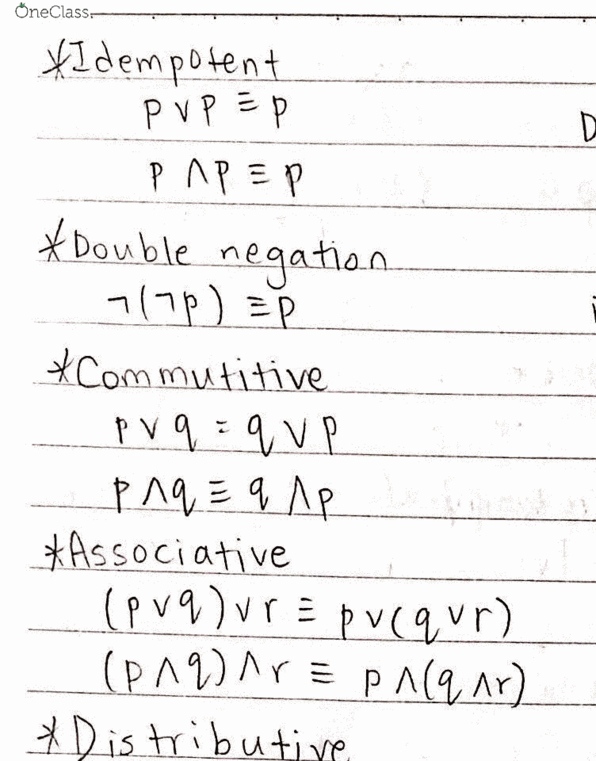 OneClass
*Idempotent
p ∨ p ≡ p
D
p ∧ p ≡ p
*Double negation
¬(¬p) ≡ p
i
*Commutitive
p ∨ q = q ∨ p
p ∧ q ≡ q ∧ p
*Associative
(p ∨ q) ∨ r ≡ p ∨ (q ∨ r)
(p ∧ q) ∧ r ≡ p ∧ (q ∧ r)
*Distributive